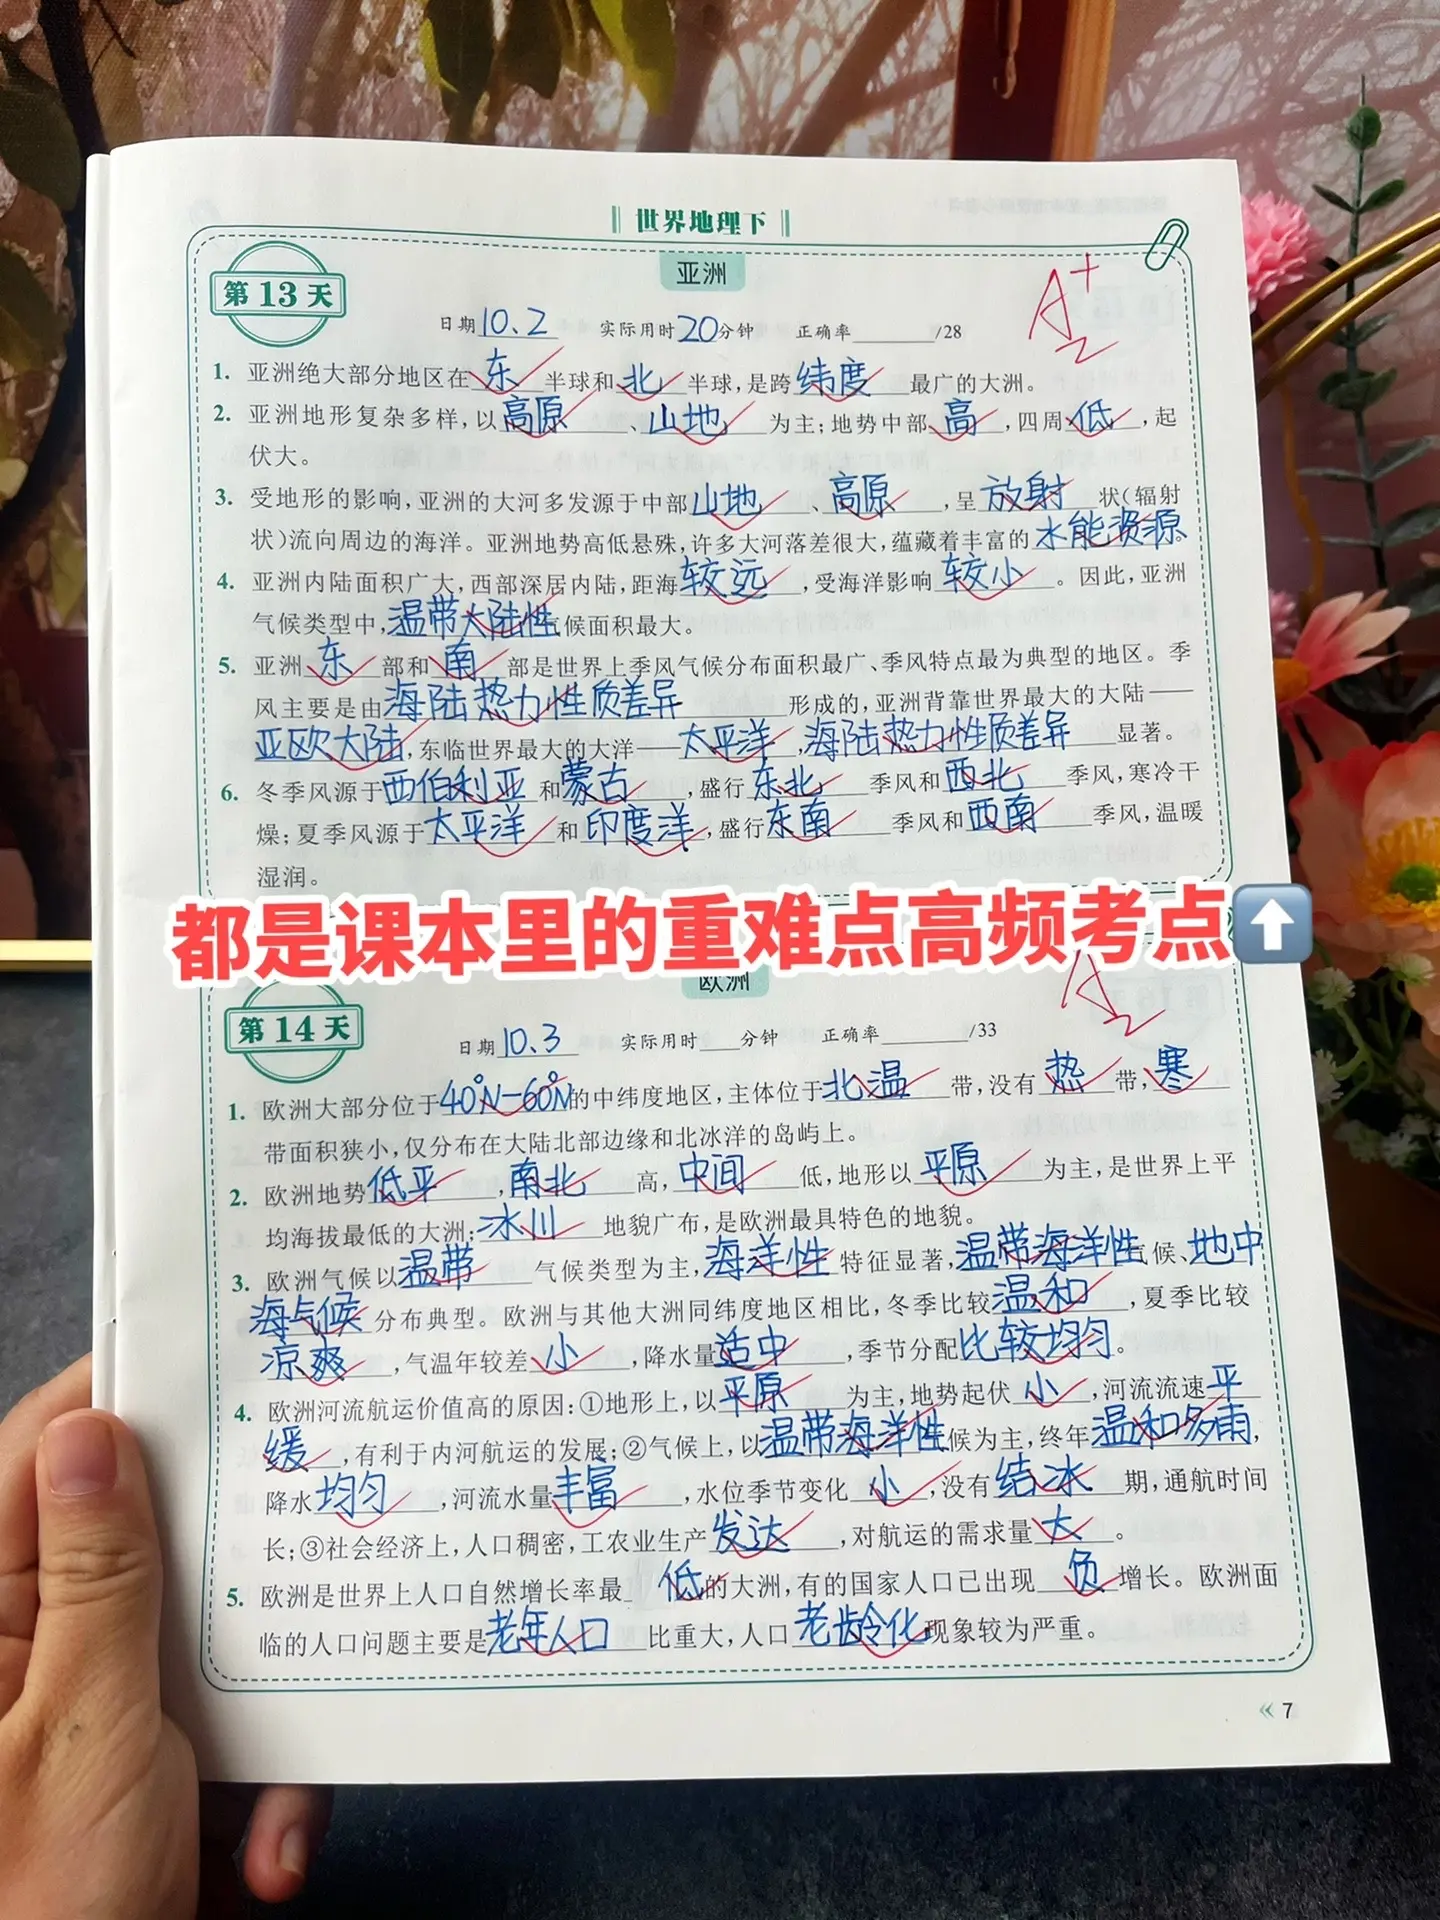 世界地理下
亚洲
第13天
A+
日期10.2 实际用时20分钟 正确率______/28
1. 亚洲绝大部分地区在东半球和北半球,是跨纬度最广的大洲。
2. 亚洲地形复杂多样,以高原、山地为主;地势中部高,四周低,起
伏大。
3. 受地形的影响,亚洲的大河多发源于中部山地、高原,呈放射状(辐射
状)流向周边的海洋。亚洲地势高低悬殊,许多大河落差很大,蕴藏着丰富的水能资源。
4. 亚洲内陆面积广大,西部深居内陆,距海较远,受海洋影响较小。因此,亚洲
气候类型中,温带大陆性气候面积最大。
5. 亚洲东部和南部是世界上季风气候分布面积最广、季风特点最为典型的地区。季
风主要是由海陆热力性质差异形成的,亚洲背靠世界最大的大陆——
亚欧大陆,东临世界最大的大洋——太平洋,海陆热力性质差异显著。
6. 冬季风源于西伯利亚和蒙古,盛行东北季风和西北季风,寒冷干
燥;夏季风源于太平洋和印度洋,盛行东南季风和西南季风,温暖
湿润。
都是课本里的重难点高频考点⬆️
欧洲
第14天
A
日期10.3 实际用时___分钟 正确率______/33
1. 欧洲大部分位于40°N-60°N的中纬度地区,主体位于北温带,没有热带,寒
带面积狭小,仅分布在大陆北部边缘和北冰洋的岛屿上。
2. 欧洲地势低平,南北高,中间低,地形以平原为主,是世界上平
均海拔最低的大洲;冰川地貌广布,是欧洲最具特色的地貌。
3. 欧洲气候以温带气候类型为主,海洋性特征显著,温带海洋性气候、地中
海气候分布典型。欧洲与其他大洲同纬度地区相比,冬季比较温和,夏季比较
凉爽,气温年较差小,降水量适中,季节分配比较均匀。
4. 欧洲河流航运价值高的原因:①地形上,以平原为主,地势起伏小,河流流速平
缓,有利于内河航运的发展;②气候上,以温带海洋性候为主,终年温和多雨,
降水均匀,河流水量丰富,水位季节变化小,没有结冰期,通航时间
长;③社会经济上,人口稠密,工农业生产发达,对航运的需求量大。
5. 欧洲是世界上人口自然增长率最低的大洲,有的国家人口已出现负增长。欧洲面
临的人口问题主要是老年人口比重大,人口老龄化现象较为严重。
7